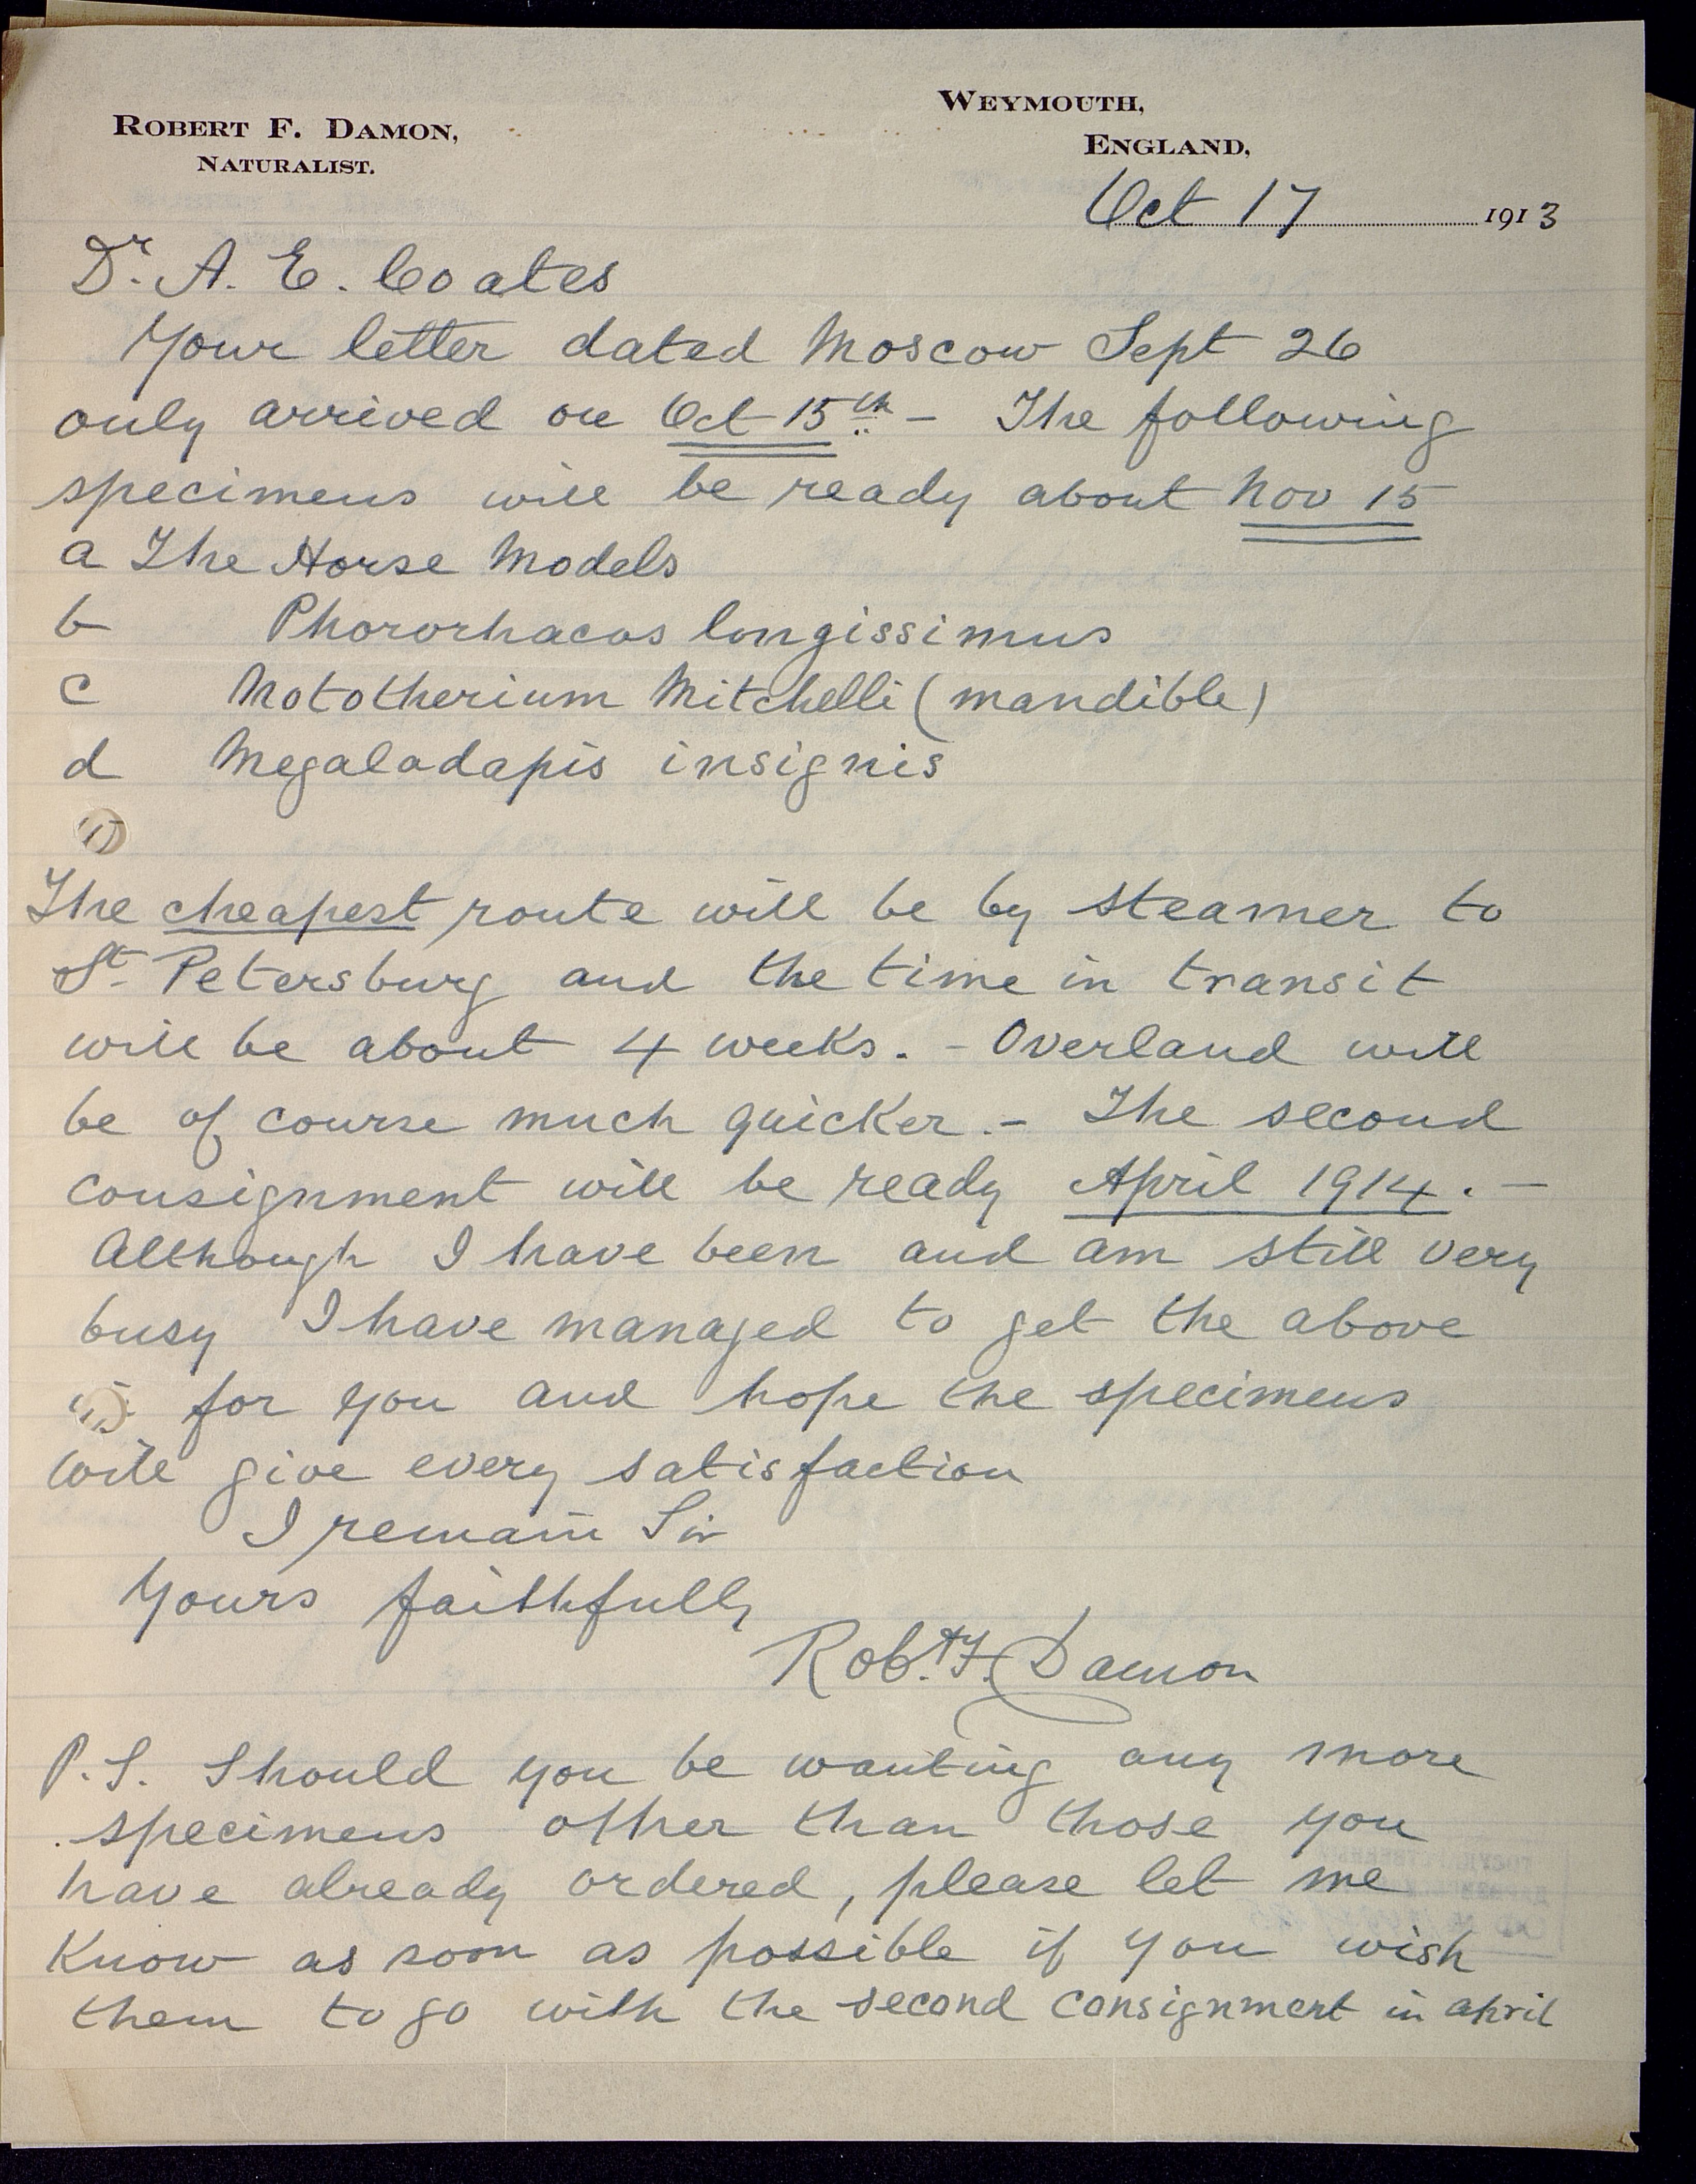 ROBERT F. DAMON,
NATURALIST.
WEYMOUTH,
ENGLAND,
Oct 17 1913
Dr. A. E. Coates
Your letter dated Moscow Sept 26
only arrived on Oct 15th - The following
specimens will be ready about Nov 15
a The Horse Models
b Phororhacos longissimus
c Nototherium Mitchelli (mandible)
d Megaladapis insignis
The cheapest route will be by steamer to
St Petersburg and the time in transit
will be about 4 weeks. - Overland will
be of course much quicker. - The second
consignment will be ready April 1914. -
Although I have been and am still very
busy I have managed to get the above
for you and hope the specimens
will give every satisfaction
I remain Sir
Yours faithfully
Robt. F. Damon
P.S. Should you be wanting any more
specimens other than those you
have already ordered, please let me
know as soon as possible if you wish
them to go with the second consignment in april